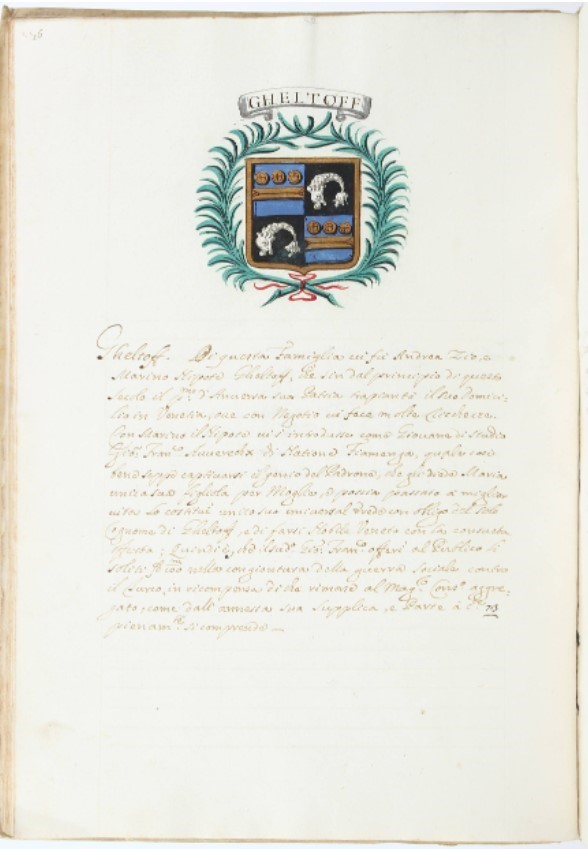 GHELTOFF
Gheltoff. Di questa Famiglia vi fù Andrea Zio, e
Marino Nipote Gheltoff, che sin dal principio di questo
Secolo el pmo d'Anversa sua Patria trapiantò il suo Domici-
lio in Venetia, ove con Negotio vi fece molte Ricchezze.
Con Marino il Nipote vi s'introdusse come Giovane di studio
Gio: Franco di Natione Fiamenga, quale così
bene seppe captivarsi il genio del Padrone, che gli diede Maria
unica sua Figliola per Moglie, e poscia passato a miglior
vita lo costituì unico suo universal Erede con obligo
Cognome di Gheltoff, e di farsi Nobile Veneto con la consueta
offerta; Quindi è, che il sudo Gio: Franco offerì al Publico li
soliti nella congiontura della guerra Sociale contro
il Turco, in ricompensa di che rimase al Mago Consο aggre-
gato, come dall'annessa sua Supplica, e Parte à 
pienamte si comprende